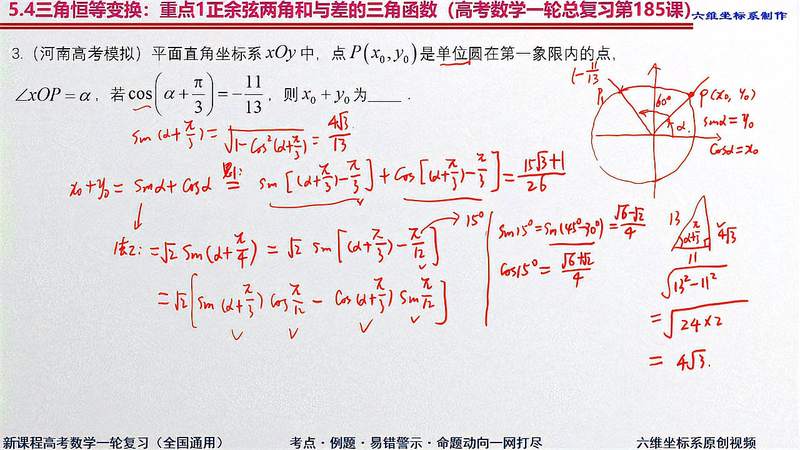 5.4三角恒等变换：重点1正余弦两角和与差的三角函数（高考数学一轮总复习第185课）六维坐标系制作
3.（河南高考模拟）平面直角坐标系 xOy 中，点 P(x₀, y₀) 是单位圆在第一象限内的点，
∠xOP = α，若 cos(α + π/3) = -11/13，则 x₀ + y₀ 为____．
(-11/13
P₁
60°
P(x₀, y₀)
α
sinα = y₀
cosα = x₀
sin(α+π/3) = √(1-cos²(α+π/3)) = 4√3/13
x₀+y₀ = sinα + cosα 法1: = sin[(α+π/3)-π/3] + cos[(α+π/3)-π/3] = (15√3+1)/26
法2: = √2 sin(α+π/4) = √2 sin[(α+π/3)-π/12] → 15°
= √2[sin(α+π/3)cos π/12 - cos(α+π/3) sin π/12]
sin15° = sin(45°-30°) = (√6-√2)/4
cos15° = (√6+√2)/4
13
α+π/3
4√3
11
√(13²-11²)
= √(24×2)
= 4√3.
新课程高考数学一轮复习（全国通用）
考点·例题·易错警示·命题动向一网打尽
六维坐标系原创视频